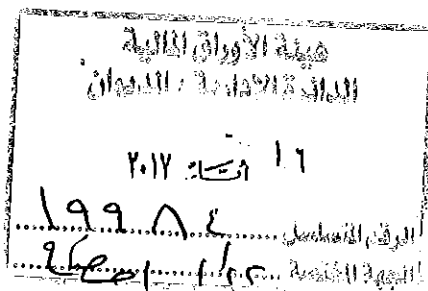 هيئة الأوراق المالية
الدائرة الإدارية / الديوان
١٦ ٢٠١٧
الرقم المتسلسل ١٩٩٨٤
الجهة المختصة